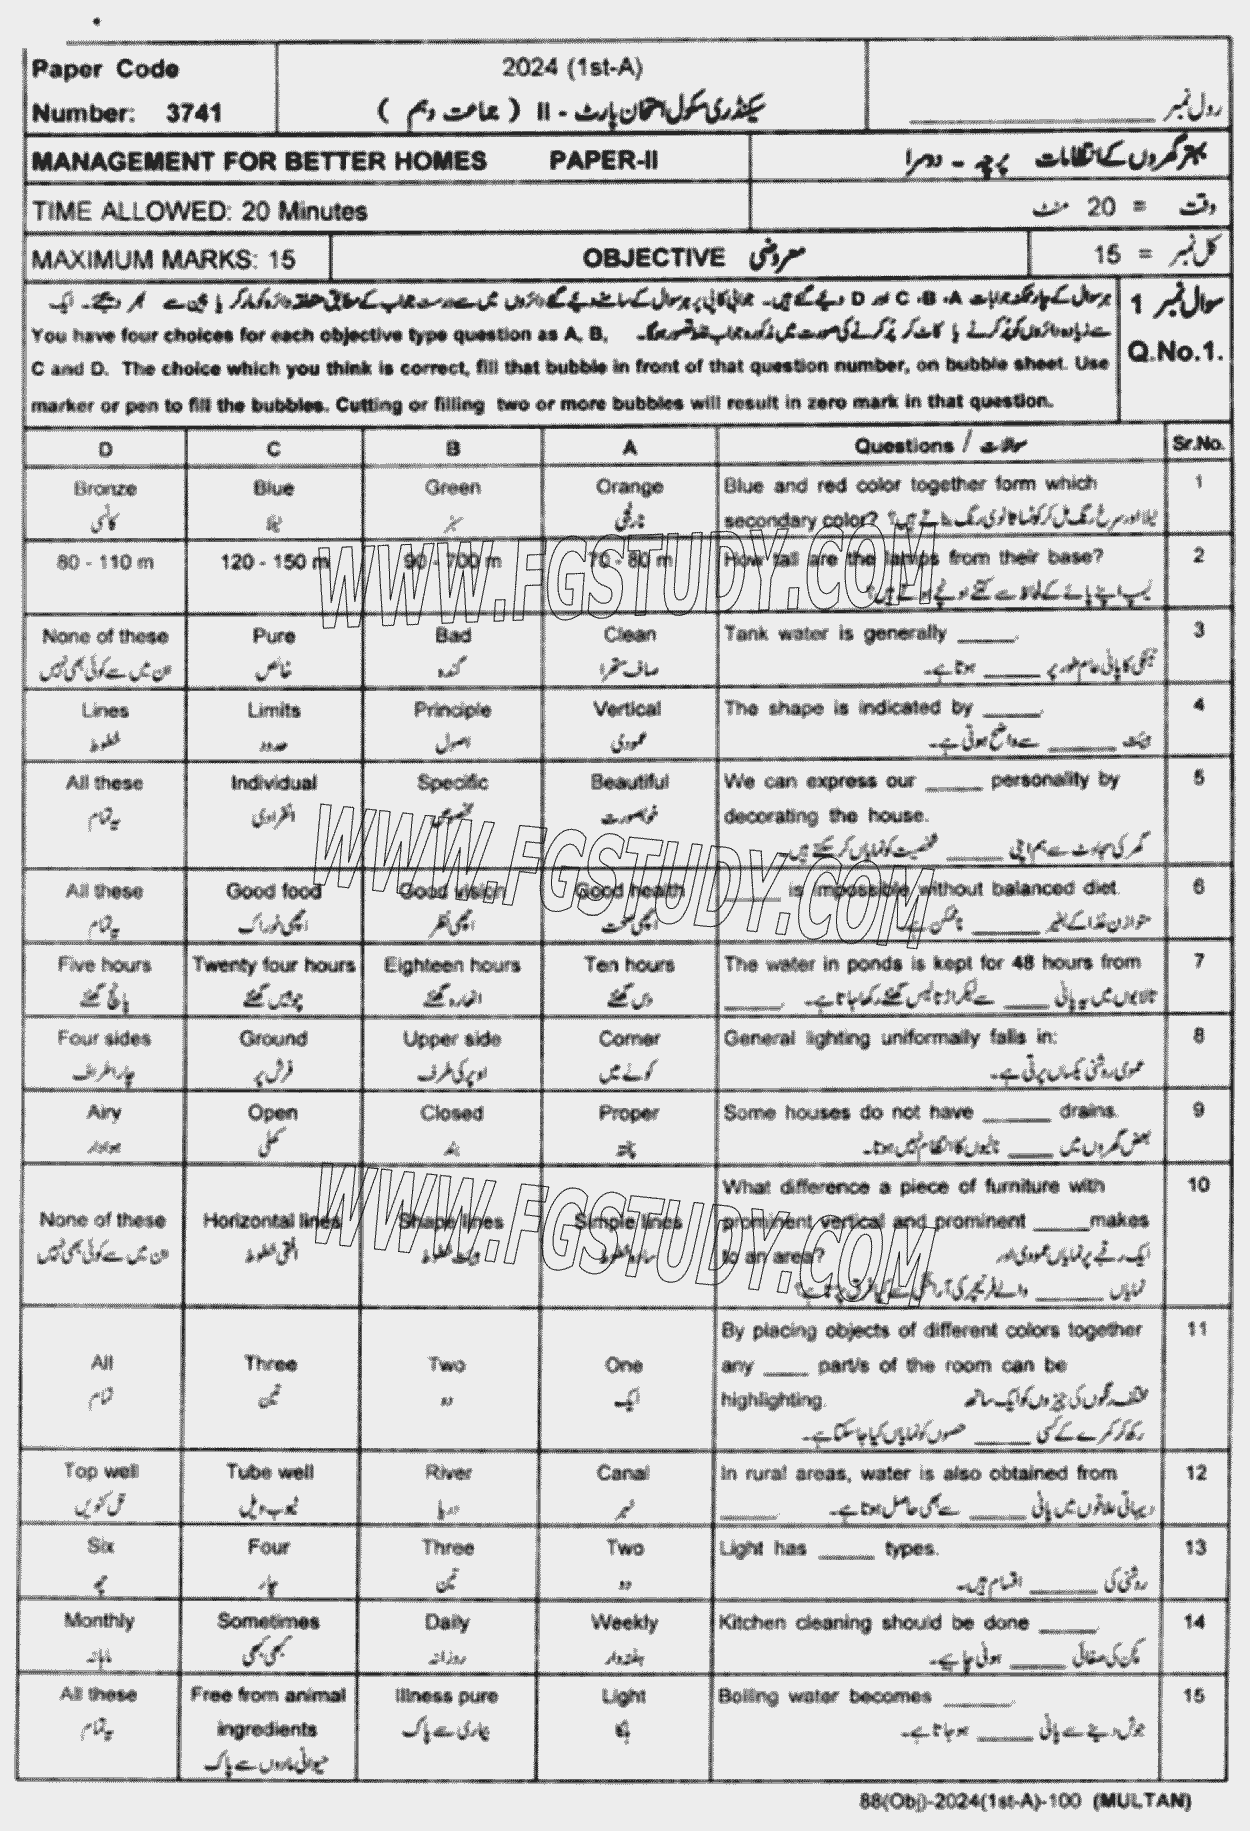 Paper Code
Number: 3741
2024 (1st-A)
سیکنڈری سکول امتحان پارٹ - II ( جماعت دہم )
رول نمبر ____________
MANAGEMENT FOR BETTER HOMES PAPER-II
بہتر گھروں کے انتظامات پرچہ - دوسرا
TIME ALLOWED: 20 Minutes
وقت = 20 منٹ
MAXIMUM MARKS: 15
OBJECTIVE معروضی
کل نمبر = 15
سوال نمبر 1
Q.No.1.
ہر سوال کے چار ممکنہ جوابات A، B، C اور D دیئے گئے ہیں۔ جوابی کاپی پر ہر سوال کے سامنے دیئے گئے دائروں میں سے درست جواب کے مطابق متعلقہ دائرہ کو مارکر یا پین سے بھر دیجئے۔ ایک
سے زیادہ دائروں کو پُر کرنے یا کاٹ کر پُر کرنے کی صورت میں مذکورہ جواب غلط تصور ہوگا۔
You have four choices for each objective type question as A, B,
C and D. The choice which you think is correct, fill that bubble in front of that question number, on bubble sheet. Use
marker or pen to fill the bubbles. Cutting or filling two or more bubbles will result in zero mark in that question.
D C B A Questions / سوالات Sr.No.
Bronze Blue Green Orange Blue and red color together form which 1
کانسی نیلا سبز نارنجی secondary color? نیلا اور سرخ رنگ مل کر کونسا ثانوی رنگ بناتے ہیں؟
80 - 110 m 120 - 150 m 90 - 700 m 70 - 80 m How tall are the lamps from their base? 2
لیمپ اپنے پائے کے لحاظ سے کتنے اونچے ہوتے ہیں؟
None of these Pure Bad Clean Tank water is generally _____. 3
ان میں سے کوئی بھی نہیں خالص گندہ صاف ستھرا ٹینکی کا پانی عام طور پر _____ ہوتا ہے۔
Lines Limits Principle Vertical The shape is indicated by _____. 4
خطوط حدود اصول عمودی ہیئت ______ سے واضح ہوتی ہے۔
All these Individual Specific Beautiful We can express our _____ personality by 5
یہ تمام انفرادی مخصوص خوبصورت decorating the house.
گھر کی سجاوٹ سے ہم اپنی _____ شخصیت کو نمایاں کر سکتے ہیں۔
All these Good food Good vision Good health _____ is impossible without balanced diet. 6
یہ تمام اچھی خوراک اچھی نظر اچھی صحت متوازن غذا کے بغیر ______ ناممکن ہے۔
Five hours Twenty four hours Eighteen hours Ten hours The water in ponds is kept for 48 hours from 7
پانچ گھنٹے چوبیس گھنٹے اٹھارہ گھنٹے دس گھنٹے _____. تالابوں میں یہ پانی ____ سے لیکر اڑتالیس گھنٹے رکھا جاتا ہے۔
Four sides Ground Upper side Corner General lighting uniformally falls in: 8
چار اطراف فرش پر اوپر کی طرف کونے میں عمومی روشنی یکساں پڑتی ہے۔
Airy Open Closed Proper Some houses do not have ______ drains. 9
ہوادار کھلی بند پختہ بعض گھروں میں ____ نالیوں کا انتظام نہیں ہوتا۔
What difference a piece of furniture with 10
None of these Horizontal lines Shape lines Simple lines prominent vertical and prominent _____makes
ان میں سے کوئی بھی نہیں افقی خطوط ہیئت خطوط سادہ خطوط to an area? ایک رقبے پر نمایاں عمودی اور
نمایاں ______ والے فرنیچر کی آرائش سے کیا فرق پڑتا ہے؟
By placing objects of different colors together 11
All Three Two One any ____ part/s of the room can be
تمام تین دو ایک highlighting. مختلف رنگوں کی چیزوں کو ایک ساتھ
رکھ کر کمرے کے کسی _____ حصوں کو نمایاں کیا جا سکتا ہے۔
Top well Tube well River Canal In rural areas, water is also obtained from 12
تل کنویں ٹیوب ویل دریا نہر _____. دیہاتی علاقوں میں پانی _____ سے بھی حاصل ہوتا ہے۔
Six Four Three Two Light has _____ types. 13
چھ چار تین دو روشنی کی ______ اقسام ہیں۔
Monthly Sometimes Daily Weekly Kitchen cleaning should be done _____. 14
ماہانہ کبھی کبھی روزانہ ہفتہ وار کچن کی صفائی _____ ہونی چاہیے۔
All these Free from animal Illness pure Light Boiling water becomes ______. 15
یہ تمام ingredients بیماری سے پاک ہلکا جوش دینے سے پانی _____ ہو جاتا ہے۔
حیوانی مادوں سے پاک
88(Obj)-2024(1st-A)-100 (MULTAN)
WWW.FGSTUDY.COM
WWW.FGSTUDY.COM
WWW.FGSTUDY.COM